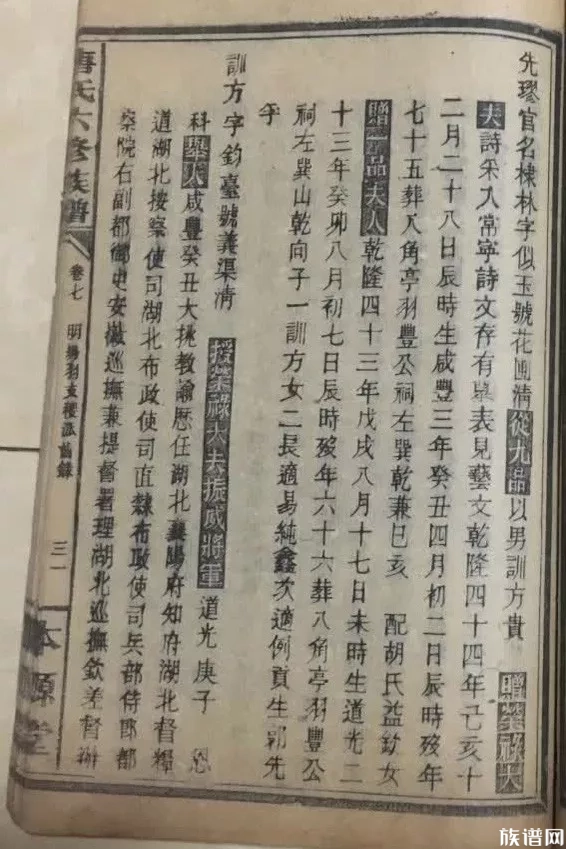 先璆官名棣林字似玉號花圃清從九品以男訓方貴 贈榮祿大
夫詩采入常寧詩文存有單表見藝文乾隆四十四年己亥十
二月二十八日辰時生咸豐三年癸丑四月初二日辰時歿年
七十五葬八角亭羽豐公祠左巽乾兼巳亥 配胡氏益幼女
贈一品夫人乾隆四十三年戊戌八月十七日未時生道光二
十三年癸卯八月初七日辰時歿年六十六葬八角亭羽豐公
祠左巽山乾向子一訓方女二長適易純鑫次適例貢生鄧先
乎
訓方字鈞臺號義渠清 授榮祿大夫振威將軍 道光庚子 恩
科舉人咸豐癸丑大挑教諭歷任湖北襄陽府知府湖北督糧
道湖北按察使司湖北布政使司直隸布政使司兵部侍郎都
察院右副都御史安徽巡撫兼提督署理湖北巡撫欽差督辦
唐氏六修族譜 卷七 明揚羽支稷派齒錄 三一 本源堂
族谱网